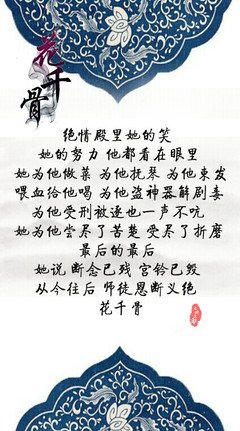 花千骨
绝情殿里她的笑
她的努力 他都看在眼里
她为他做羹 为他抚琴 为他束发
喂血给他喝 为他盗神器解剧毒
为他受刑被逐也一声不吭
她为他尝尽了苦楚 受尽了折磨
最后的最后
她说 断念已残 宫铃已毁
从今往后 师徒恩断义绝
花千骨